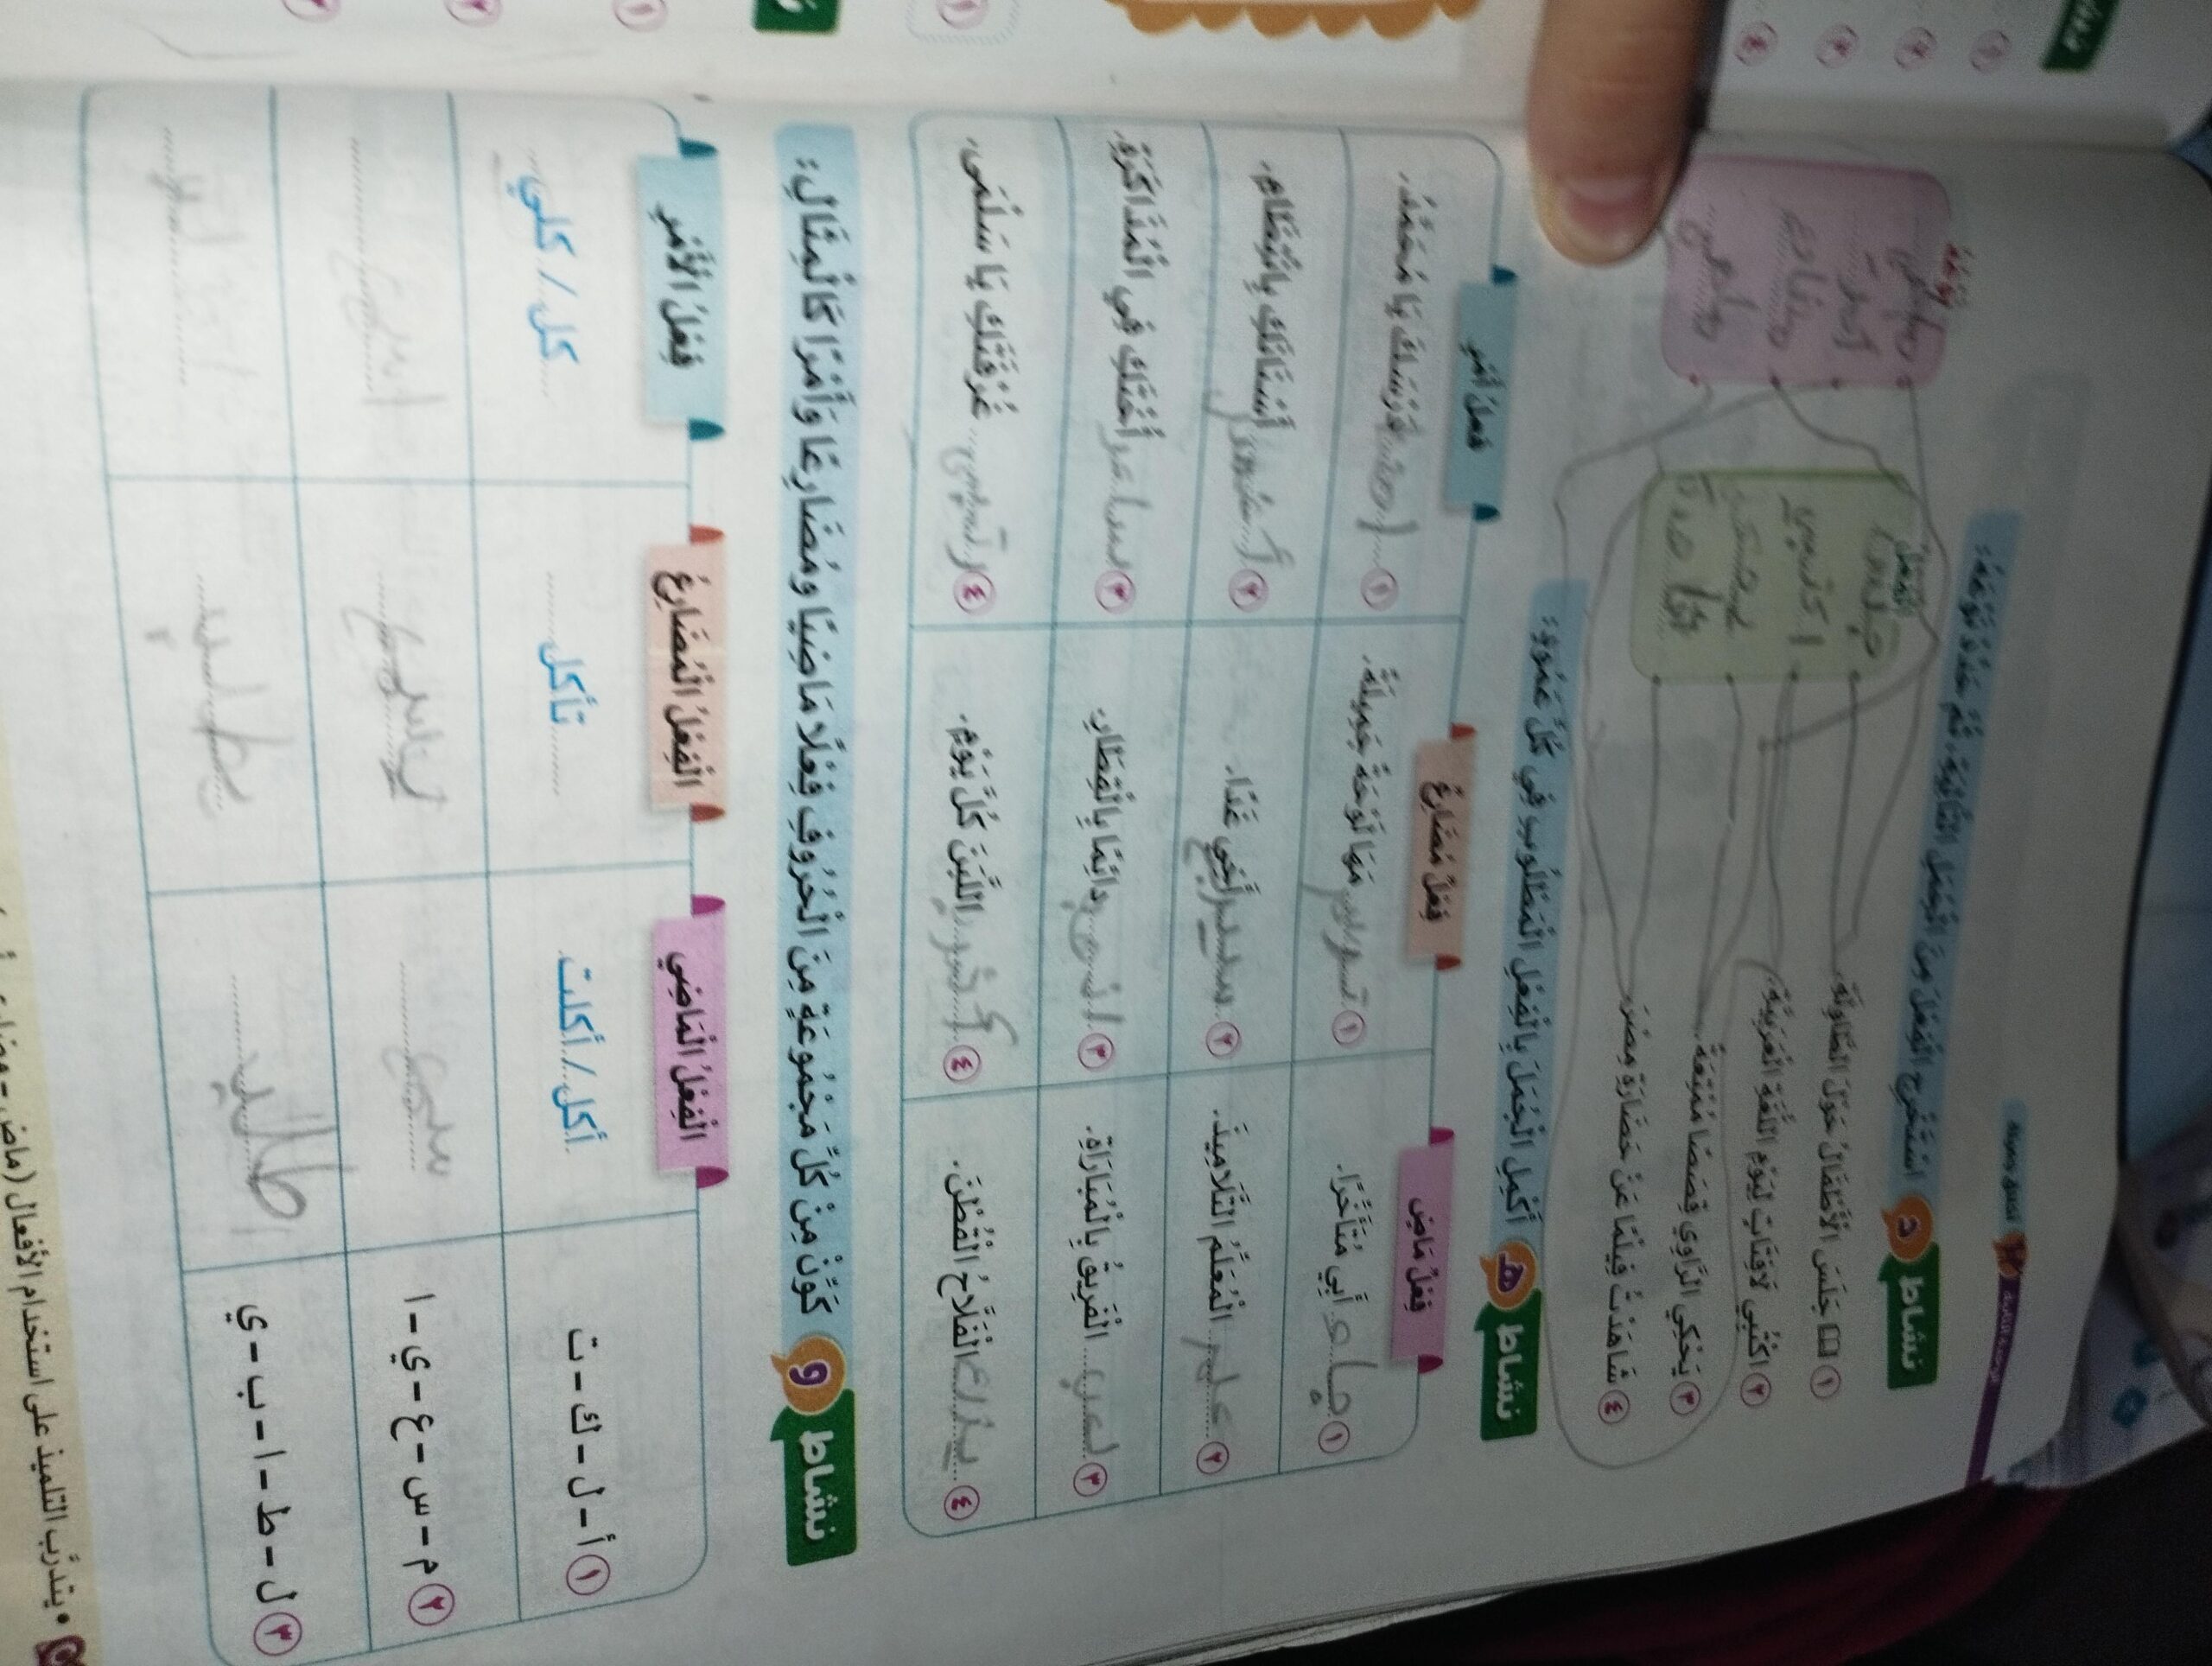 نشاط د اسْتَخْرِجِ الْفِعْلَ مِنَ الْجُمَلِ التَّالِيَةِ، ثُمَّ حَدِّدْ نَوْعَهُ:
١ جَلَسَ الْأَطْفَالُ حَوْلَ الطَّاوِلَةِ.
٢ اكْتُبِي لَافِتَاتٍ لِيَوْمِ اللُّغَةِ الْعَرَبِيَّةِ.
٣ يَحْكِي الرَّاوِي قِصَصًا مُمْتِعَةً.
٤ شَاهَدْتُ فِيلْمًا عَنْ حَضَارَةِ مِصْرَ.
الْفِعْلُ
جلس
اكتبي
يحكي
شاهد
نَوْعُهُ
ماضي
أمر
مضارع
ماضي
نشاط هـ أَكْمِلِ الْجُمَلَ بِالْفِعْلِ الْمَطْلُوبِ فِي كُلِّ عَمُودٍ:
فِعْلٌ مَاضٍ فِعْلٌ مُضَارِعٌ فِعْلُ أَمْرٍ
١ جاء أَبِي مُتَأَخِّرًا. ١ ترسم مَهَا لَوْحَةً جَمِيلَةً. ١ دَرْسَكَ يَا مُحَمَّدُ.
٢ الْمُعَلِّمُ التَّلَامِيذَ. ٢ أَخِي غَدًا. ٢ أَسْنَانَكَ بِانْتِظَامٍ.
٣ لعب الْفَرِيقُ بِالْمُبَارَاةِ. ٣ دَائِمًا بِالْقِطَارِ. ٣ ساعد أُخْتَكَ فِي الْمُذَاكَرَةِ.
٤ الْفَلَّاحُ الْقُطْنَ. ٤ اللَّبَنَ كُلَّ يَوْمٍ. ٤ رتبي غُرْفَتَكِ يَا سَلْمَى.
نشاط و كَوِّنْ مِنْ كُلِّ مَجْمُوعَةٍ مِنَ الْحُرُوفِ فِعْلًا مَاضِيًا وَمُضَارِعًا وَأَمْرًا كَالْمِثَالِ:
الْفِعْلُ الْمَاضِي الْفِعْلُ الْمُضَارِعُ فِعْلُ الْأَمْرِ
١ أ – ل – ك – ت أكل / أكلت تأكل كل / كلي
٢ م – س – ع – ي – ا سمع يسمع اسمع
٣ ل – ط – ا – ب – ي
• يتدرَّب التلميذ على استخدام الأفعال (ماضٍ –